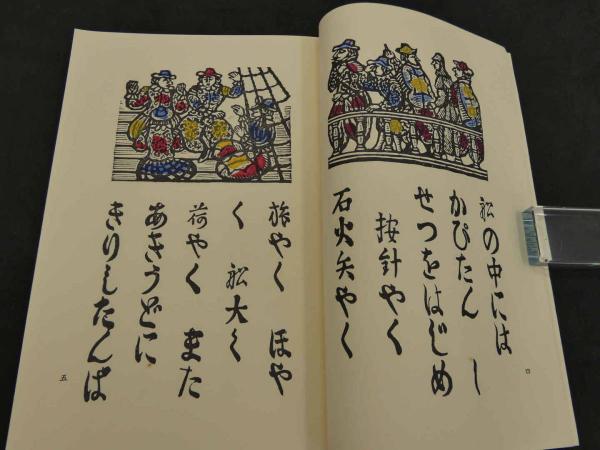 舩の中には し
かぴたん
せつをはじめ
按針やく
石火矢やく
四
旅やく ほや
く 舩大く
荷やく また
あきうどに
きりしたんば
五